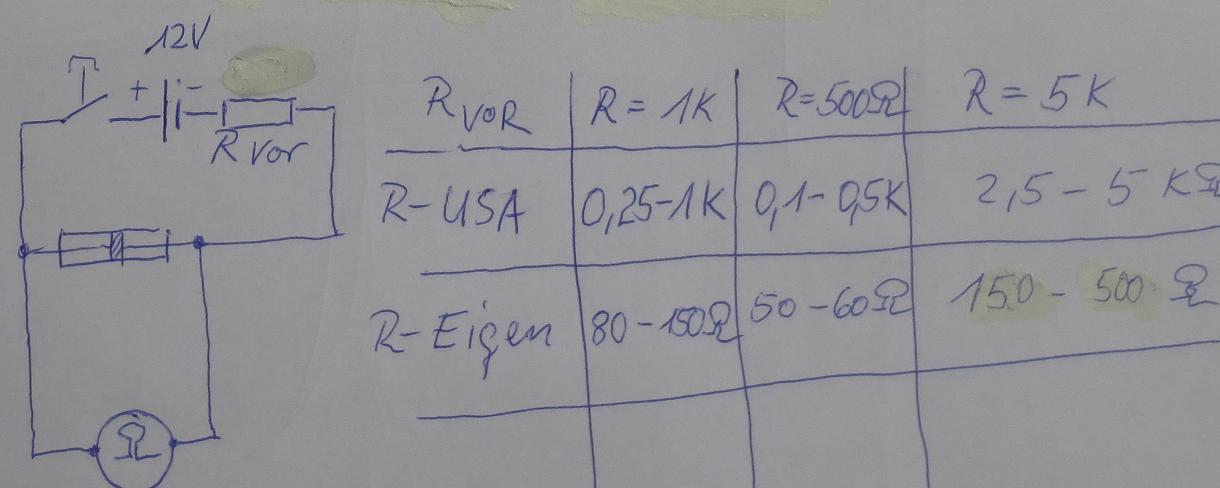 12V
+ -
R vor
Ω
R VOR R = 1K R=500Ω R = 5K
R-USA 0,25-1K 0,1-0,5K 2,5 - 5 KΩ
R-Eigen 80-150Ω 50-60Ω 150 - 500 Ω